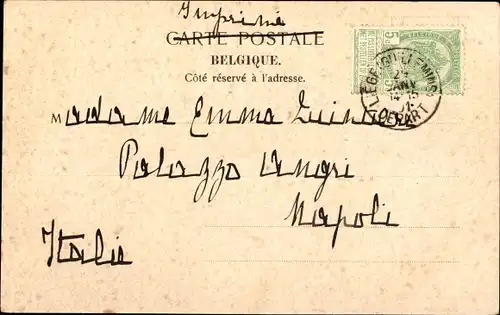 Imprimé
CARTE POSTALE
BELGIQUE.
Côté réservé à l'adresse.
LIEGE (GUILLEMINS)
JANV
14-15
DEPART
Madame Emma
Palazzo Angri
Napoli
Italie